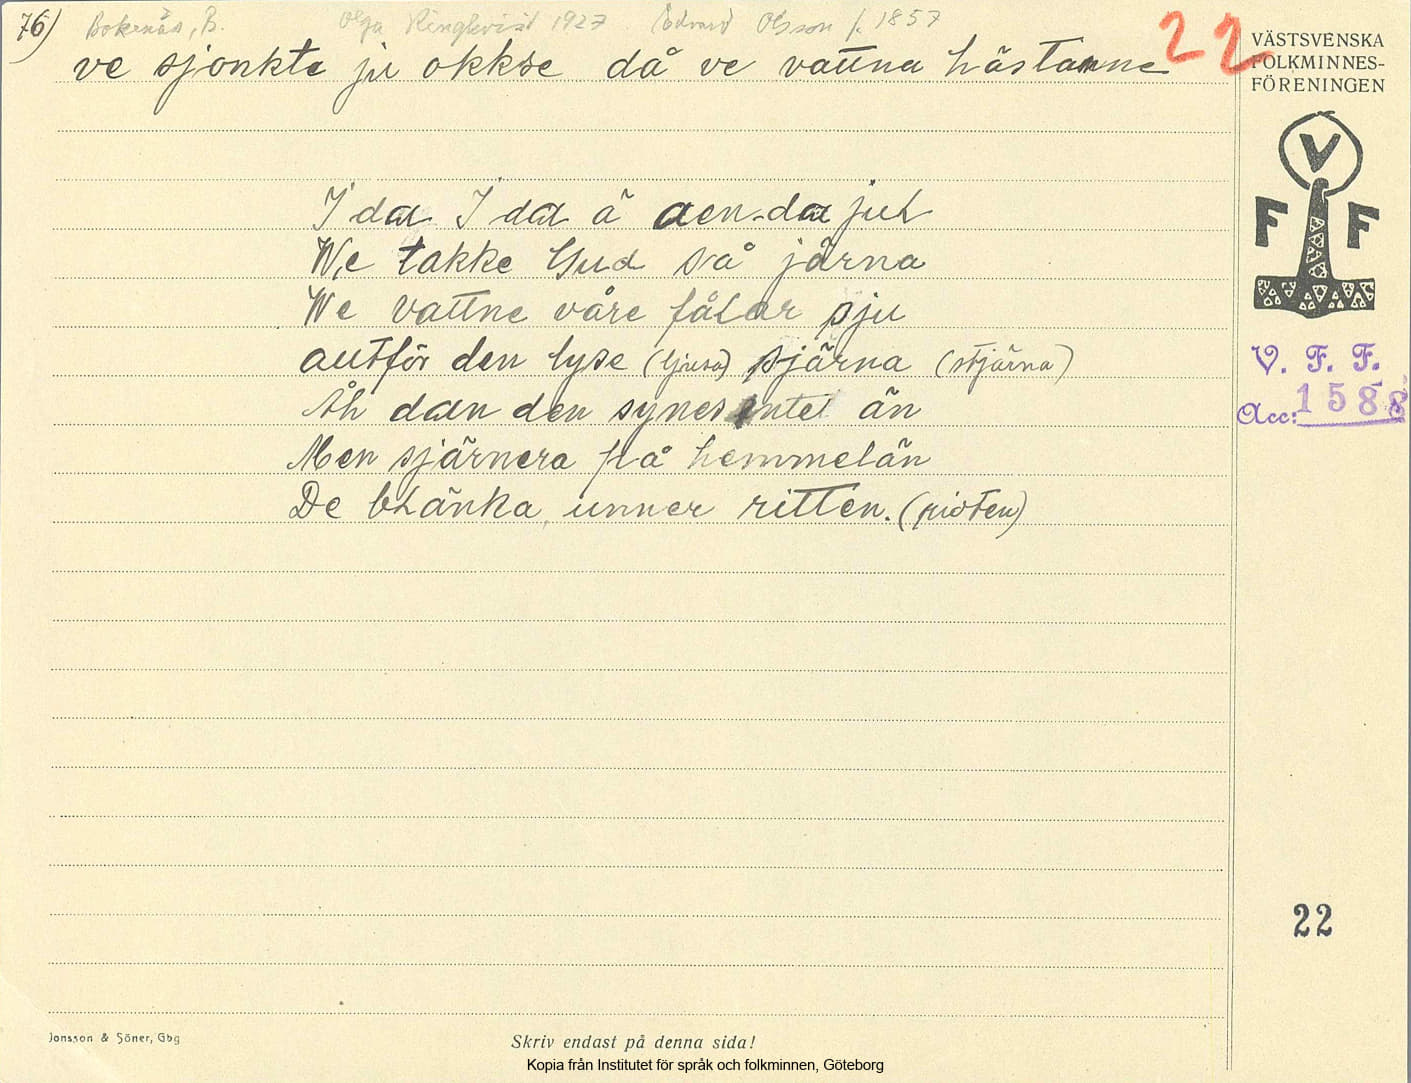 76) Bokenäs, B. Olga Ringkvist 1927 Edvard Olsson f. 1857
22
ve sjonkte ju okkse då ve vattna hästanne
I da I da ä aen da juL
We takke Gud så järna
We vattne våre fåLar sju
autför den lyse (ljusa) sjärna (stjärna)
Äh dan den synes intet än
Men sjärnera på hemmelän
De bLänka unner ritten. (ridten)
VÄSTSVENSKA
FOLKMINNES-
FÖRENINGEN
V
F F
V. F. F.
Acc: 1588
22
Jonsson & Söner, Gbg
Skriv endast på denna sida!
Kopia från Institutet för språk och folkminnen, Göteborg